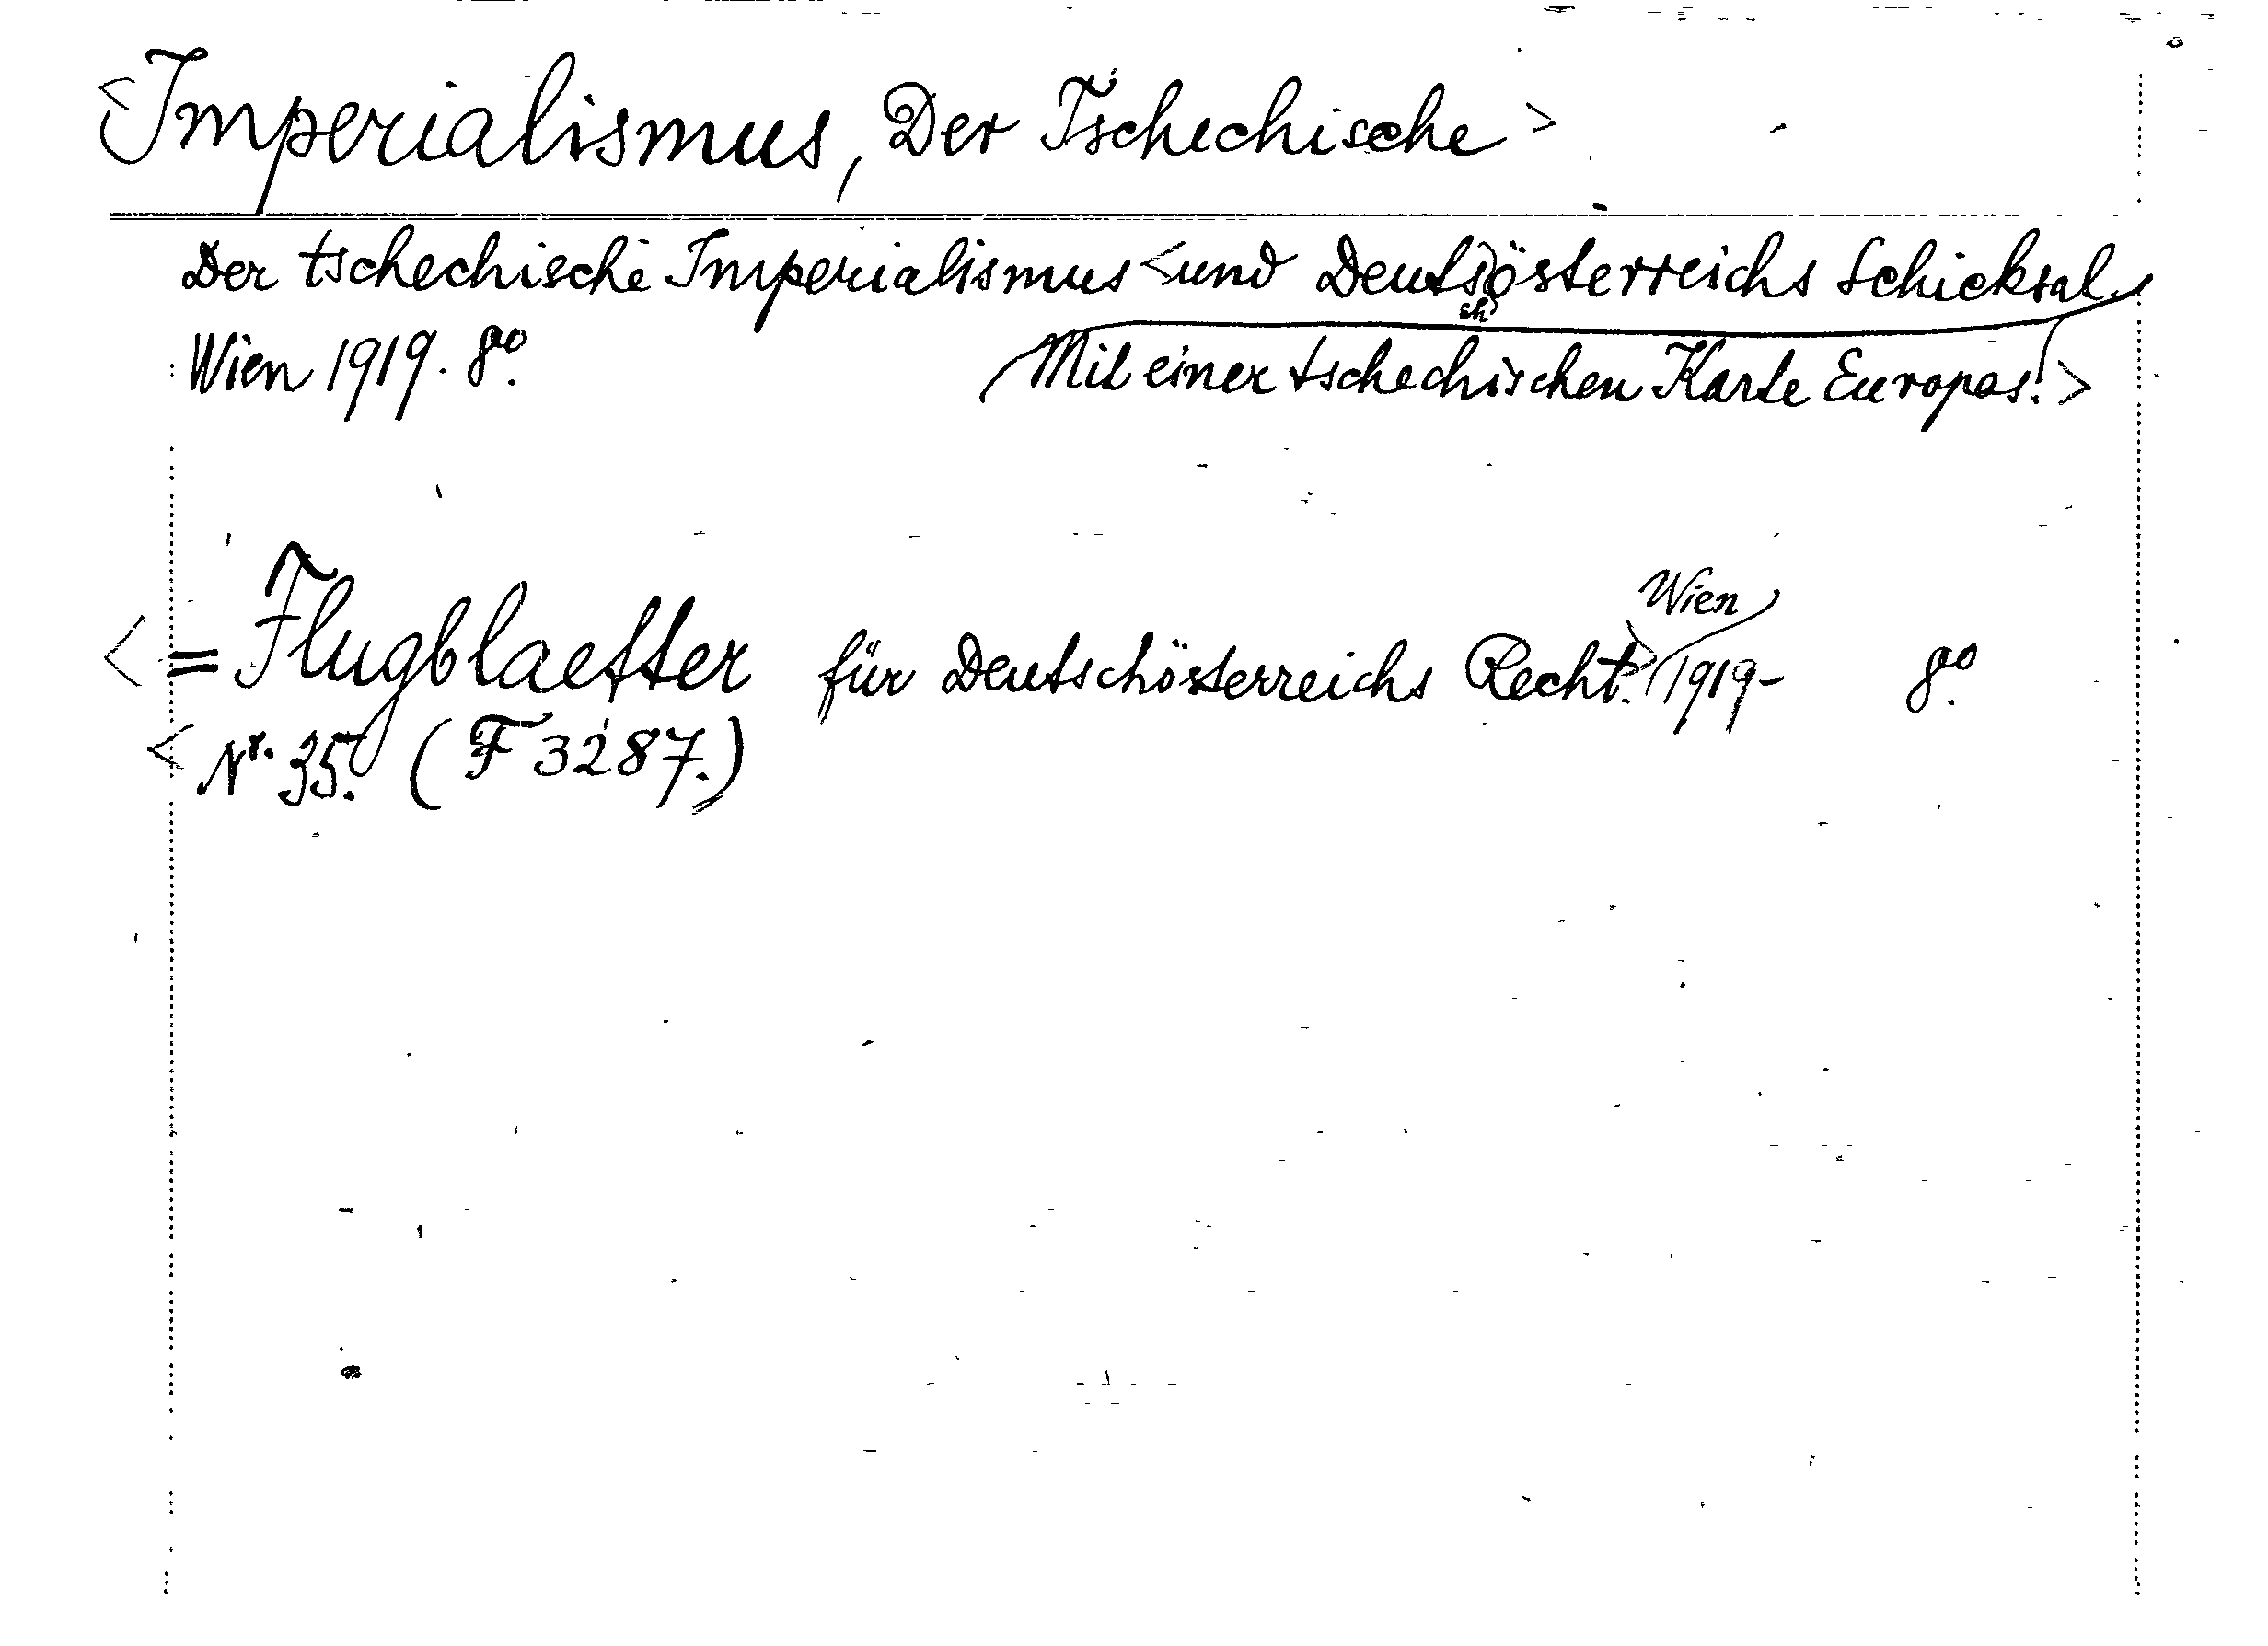 <Imperialismus, Der Tschechische>
Der tschechische Imperialismus <und Deutschösterreichs Schicksal.
Wien 1919. 8º. Mit einer tschechischen Karte Europas.>
<= Flugblaetter für Deutschösterreichs Recht.> Wien 1919- 8º.
< Nr. 35. (F 3287.)